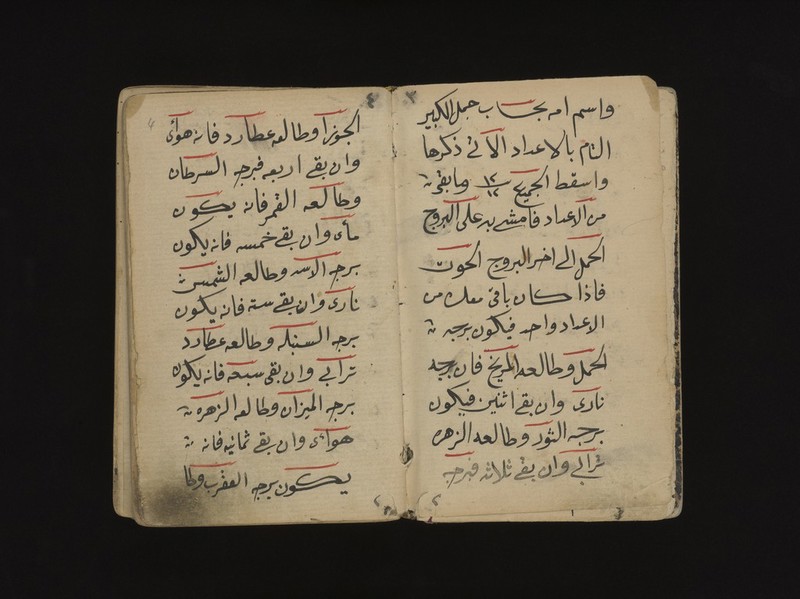 ٣
واسم امه بحساب جمل الكبير
التام بالاعداد الآتى ذكرها
واسقط الجميع ١٢ ١٢ وما بقى
من الاعداد فامشى به على البروج
الحمل الى اخر البروج الحوت
فاذا كان باقى معك من
الاعداد واحد فيكون برجه
الحمل وطالعه المريخ فان برجه
نارى وان بقى اثنين فيكون
برجه الثور وطالعه الزهره
ترابى وان بقى ثلاثه فبرجه
٤
الجوزا وطالعه عطارد فانه هوائى
وان بقى اربعه فبرجه السرطان
وطالعه القمر فانه يكون
مائى وان بقى خمسه فانه يكون
برجه الاسد وطالعه الشمس
نارى وان بقى سته فانه يكون
برجه السنبله وطالعه عطارد
ترابى وان بقى سبعه فانه يكون
برجه الميزان وطالعه الزهره
هوائى وان بقى ثمانيه فانه
يكون برجه العقرب وطا